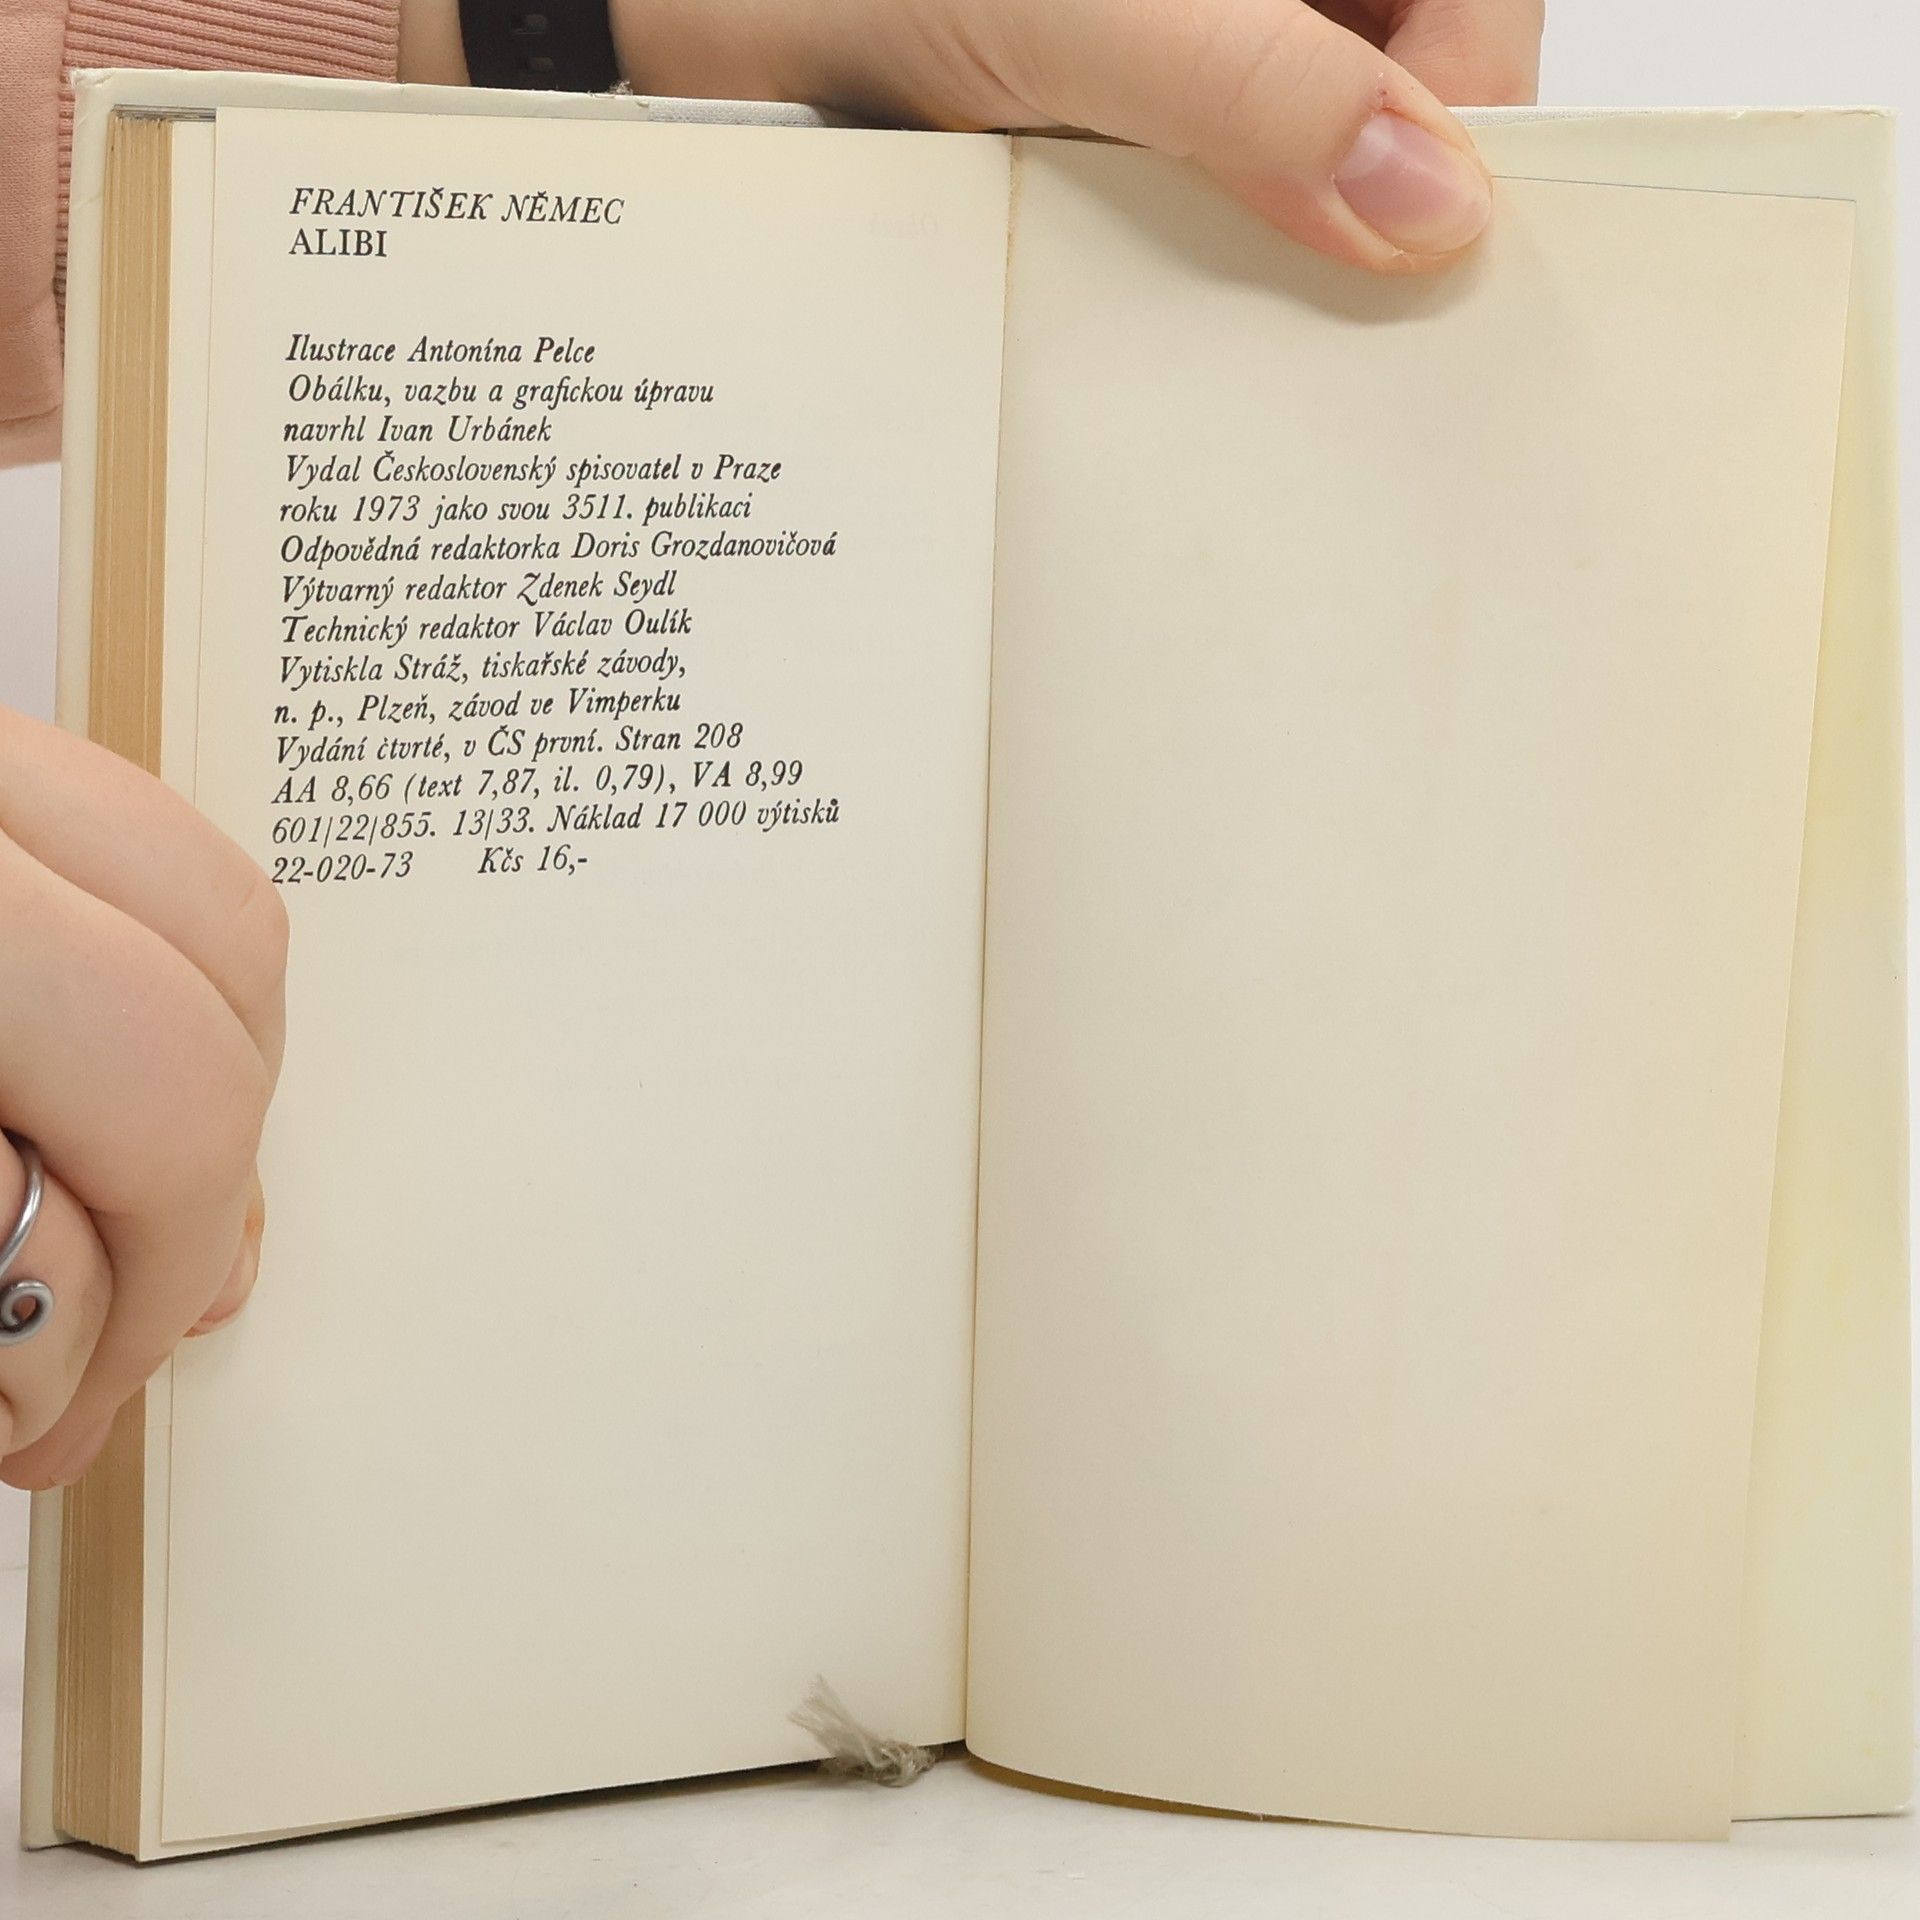 FRANTIŠEK NĚMEC
ALIBI
Ilustrace Antonína Pelce
Obálku, vazbu a grafickou úpravu
navrhl Ivan Urbánek
Vydal Československý spisovatel v Praze
roku 1973 jako svou 3511. publikaci
Odpovědná redaktorka Doris Grozdanovičová
Výtvarný redaktor Zdenek Seydl
Technický redaktor Václav Oulík
Vytiskla Stráž, tiskařské závody,
n. p., Plzeň, závod ve Vimperku
Vydání čtvrté, v ČS první. Stran 208
AA 8,66 (text 7,87, il. 0,79), VA 8,99
601/22/855. 13/33. Náklad 17 000 výtisků
22-020-73 Kčs 16,-